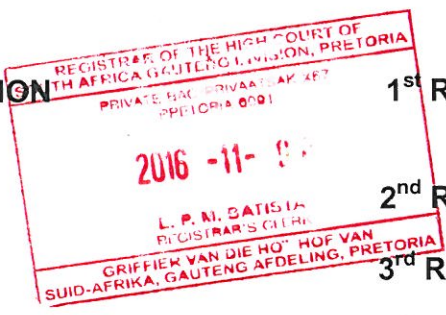 REGISTRAR OF THE HIGH COURT OF
SOUTH AFRICA GAUTENG DIVISION, PRETORIA
ION
PRIVATE BAG/PRIVAATSAK X67
PRETORIA 0001
1st R
2016 -11-
2nd R
L. P. M. BATISTA
REGISTRAR'S CLERK
GRIFFIER VAN DIE HOË HOF VAN
SUID-AFRIKA, GAUTENG AFDELING, PRETORIA
3rd R